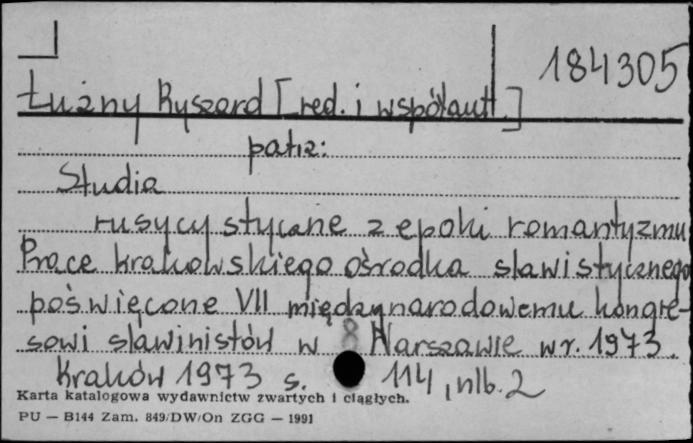 184305
Łużny Ryszard [red. i współaut.]
patrz:
Studia
rusycystyczne z epoki romantyzmu
Prace krakowskiego ośrodka slawistycznego
poświęcone VII międzynarodowemu kongre-
sowi slawinistów w Warszawie w r. 1973.
Kraków 1973 s. 114, nlb. 2
Karta katalogowa wydawnictw zwartych i ciągłych.
PU — B144 Zam. 849/DW/On ZGG — 1991